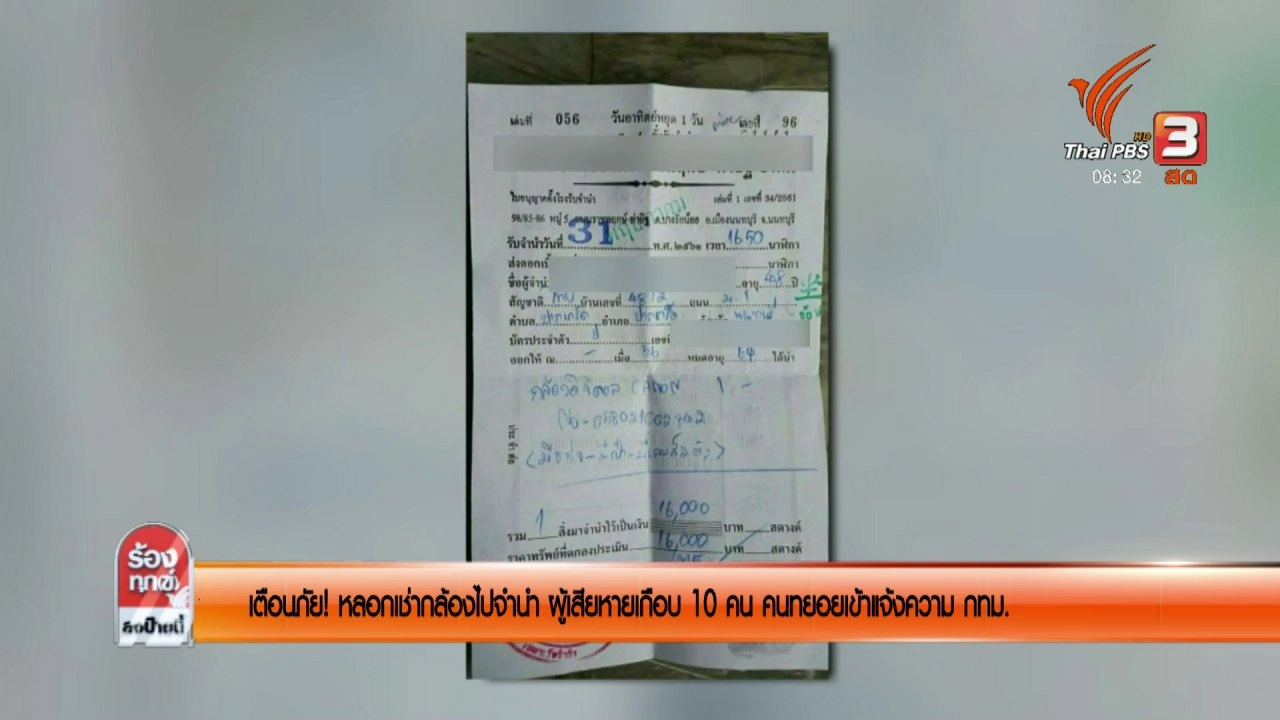 เล่มที่ 056 วันอาทิตย์หยุด 1 วัน เลขที่ 96
ใบอนุญาตตั้งโรงรับจำนำ เล่มที่ 1 เลขที่ 34/2561
98/85-86 หมู่ 5 ต.บางรักน้อย อ.เมืองนนทบุรี จ.นนทบุรี
รับจำนำวันที่ 31 พฤษภาคม พ.ศ. ๒๕๖๑ เวลา 16.50 นาฬิกา
ส่งดอกเบี้ย นาฬิกา
ชื่อผู้จำนำ อายุ 48 ปี
สัญชาติ ไทย บ้านเลขที่ ถนน ม.1
ตำบล ปากเกร็ด อำเภอ ปากเกร็ด
บัตรประจำตัว เลขที่
ออกให้ ณ - เมื่อ 56 หมดอายุ 64 ได้นำ
กล้องดิจิตอล CANON 1 -
รวม 1 สิ่งมาจำนำไว้เป็นเงิน 16,000 บาท สตางค์
ราคาทรัพย์ที่ตกลงประเมิน 16,000 บาท สตางค์
Thai PBS HD 3
08:32 สด
ร้อง
ทุกข์
ลงป้ายนี้
เตือนภัย! หลอกเช่ากล้องไปจำนำ ผู้เสียหายเกือบ 10 คน คนทยอยเข้าแจ้งความ กทม.